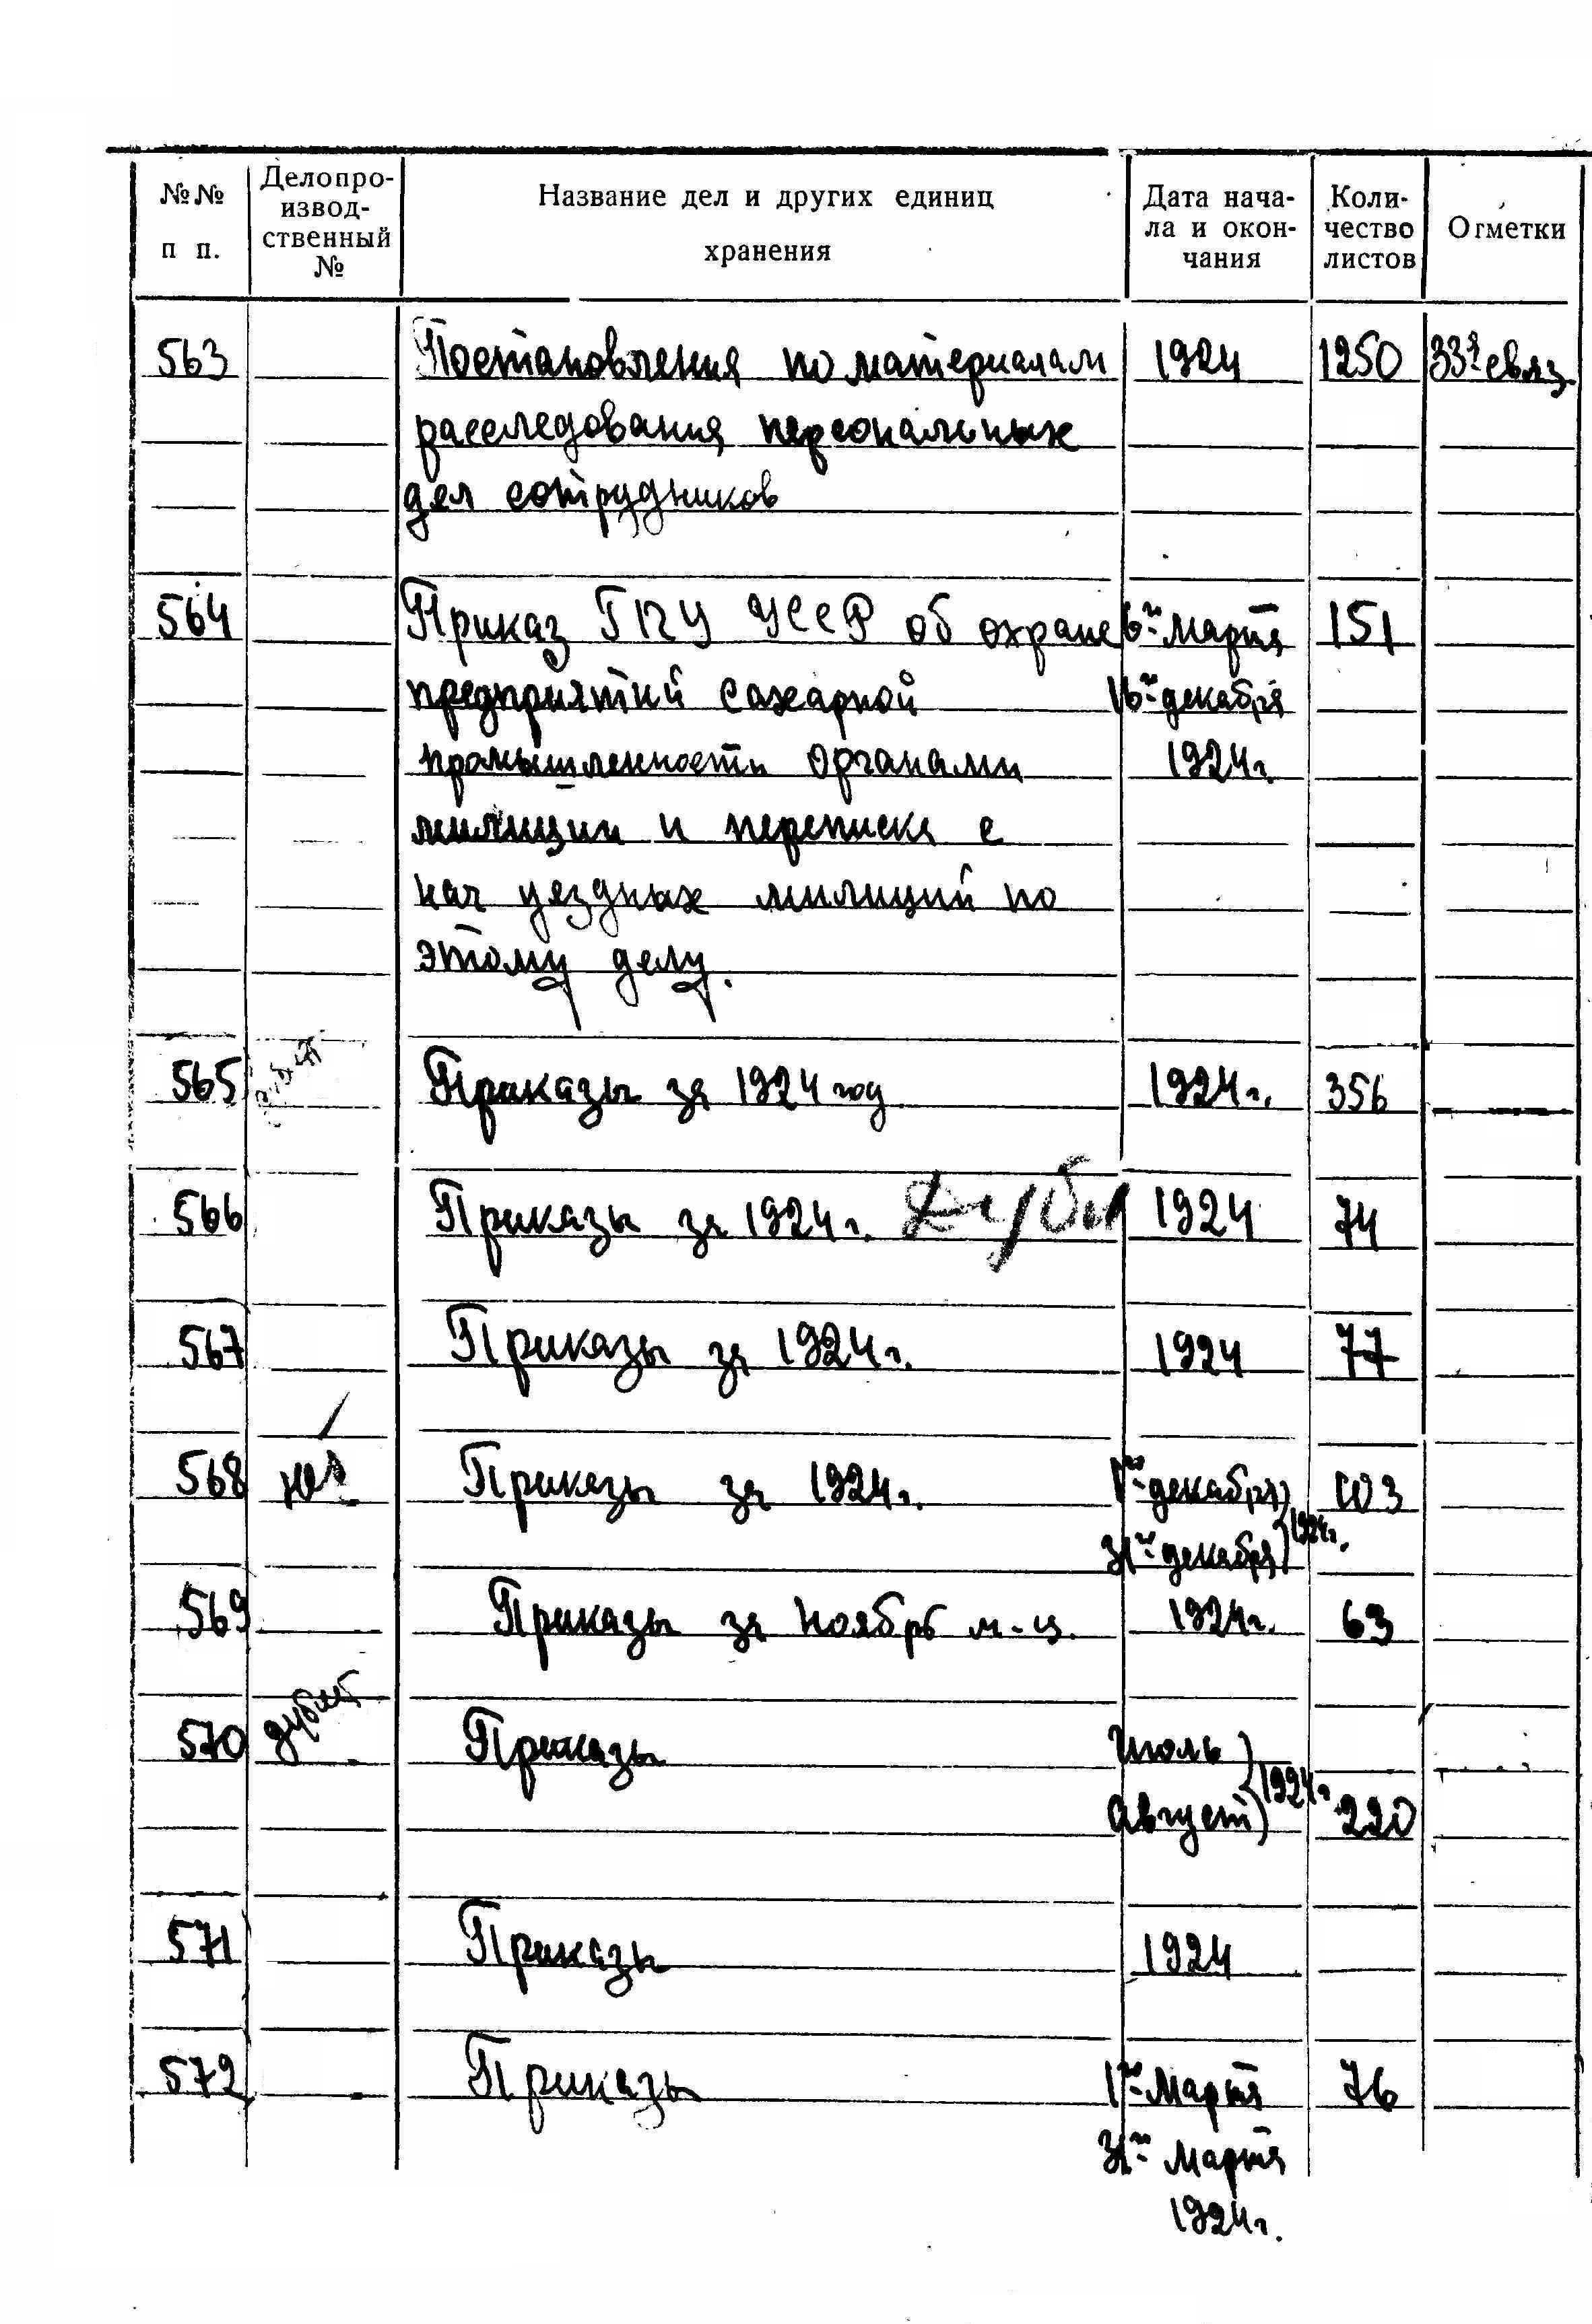 №№ п п.
Делопро-
извод-
ственный
№
Название дел и других единиц
хранения
Дата нача-
ла и окон-
чания
Коли-
чество
листов
Отметки
563 Постановления по материалам 1924 1250 33я связ.
расследования персональных
дел сотрудников
564 Приказ ГПУ УССР об охране 6го марта 151
предприятий сахарной 16го декабря
промышленности органами 1924г.
милиции и переписка с
нач уездных милиций по
этому делу.
565 Приказы за 1924 год 1924г. 356
566 Приказы за 1924г. 1924 74
567 Приказы за 1924г. 1924 77
568 Приказы за 1924г. 1го декабря 103
31го декабря 1924г.
569 Приказы за ноябрь м-ц. 1924г. 63
570 дублет Приказы Июль
Август 1924г. 220
571 Приказы 1924
572 Приказы 1го Марта 76
31го Марта
1924г.